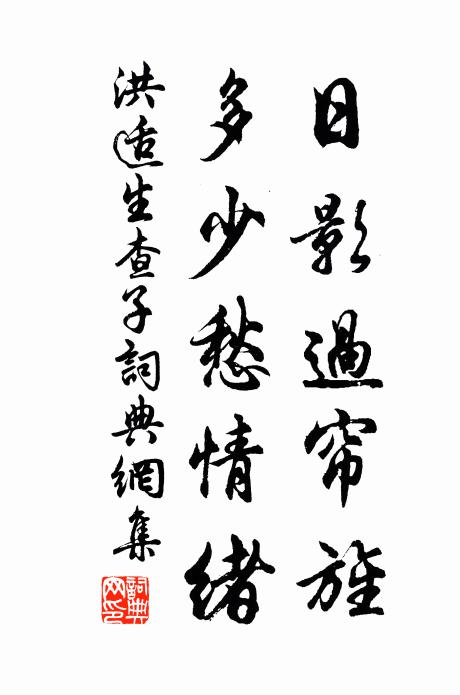 日影過帘旌
多少愁情緒
洪适生查子詞典網集
詞典网印